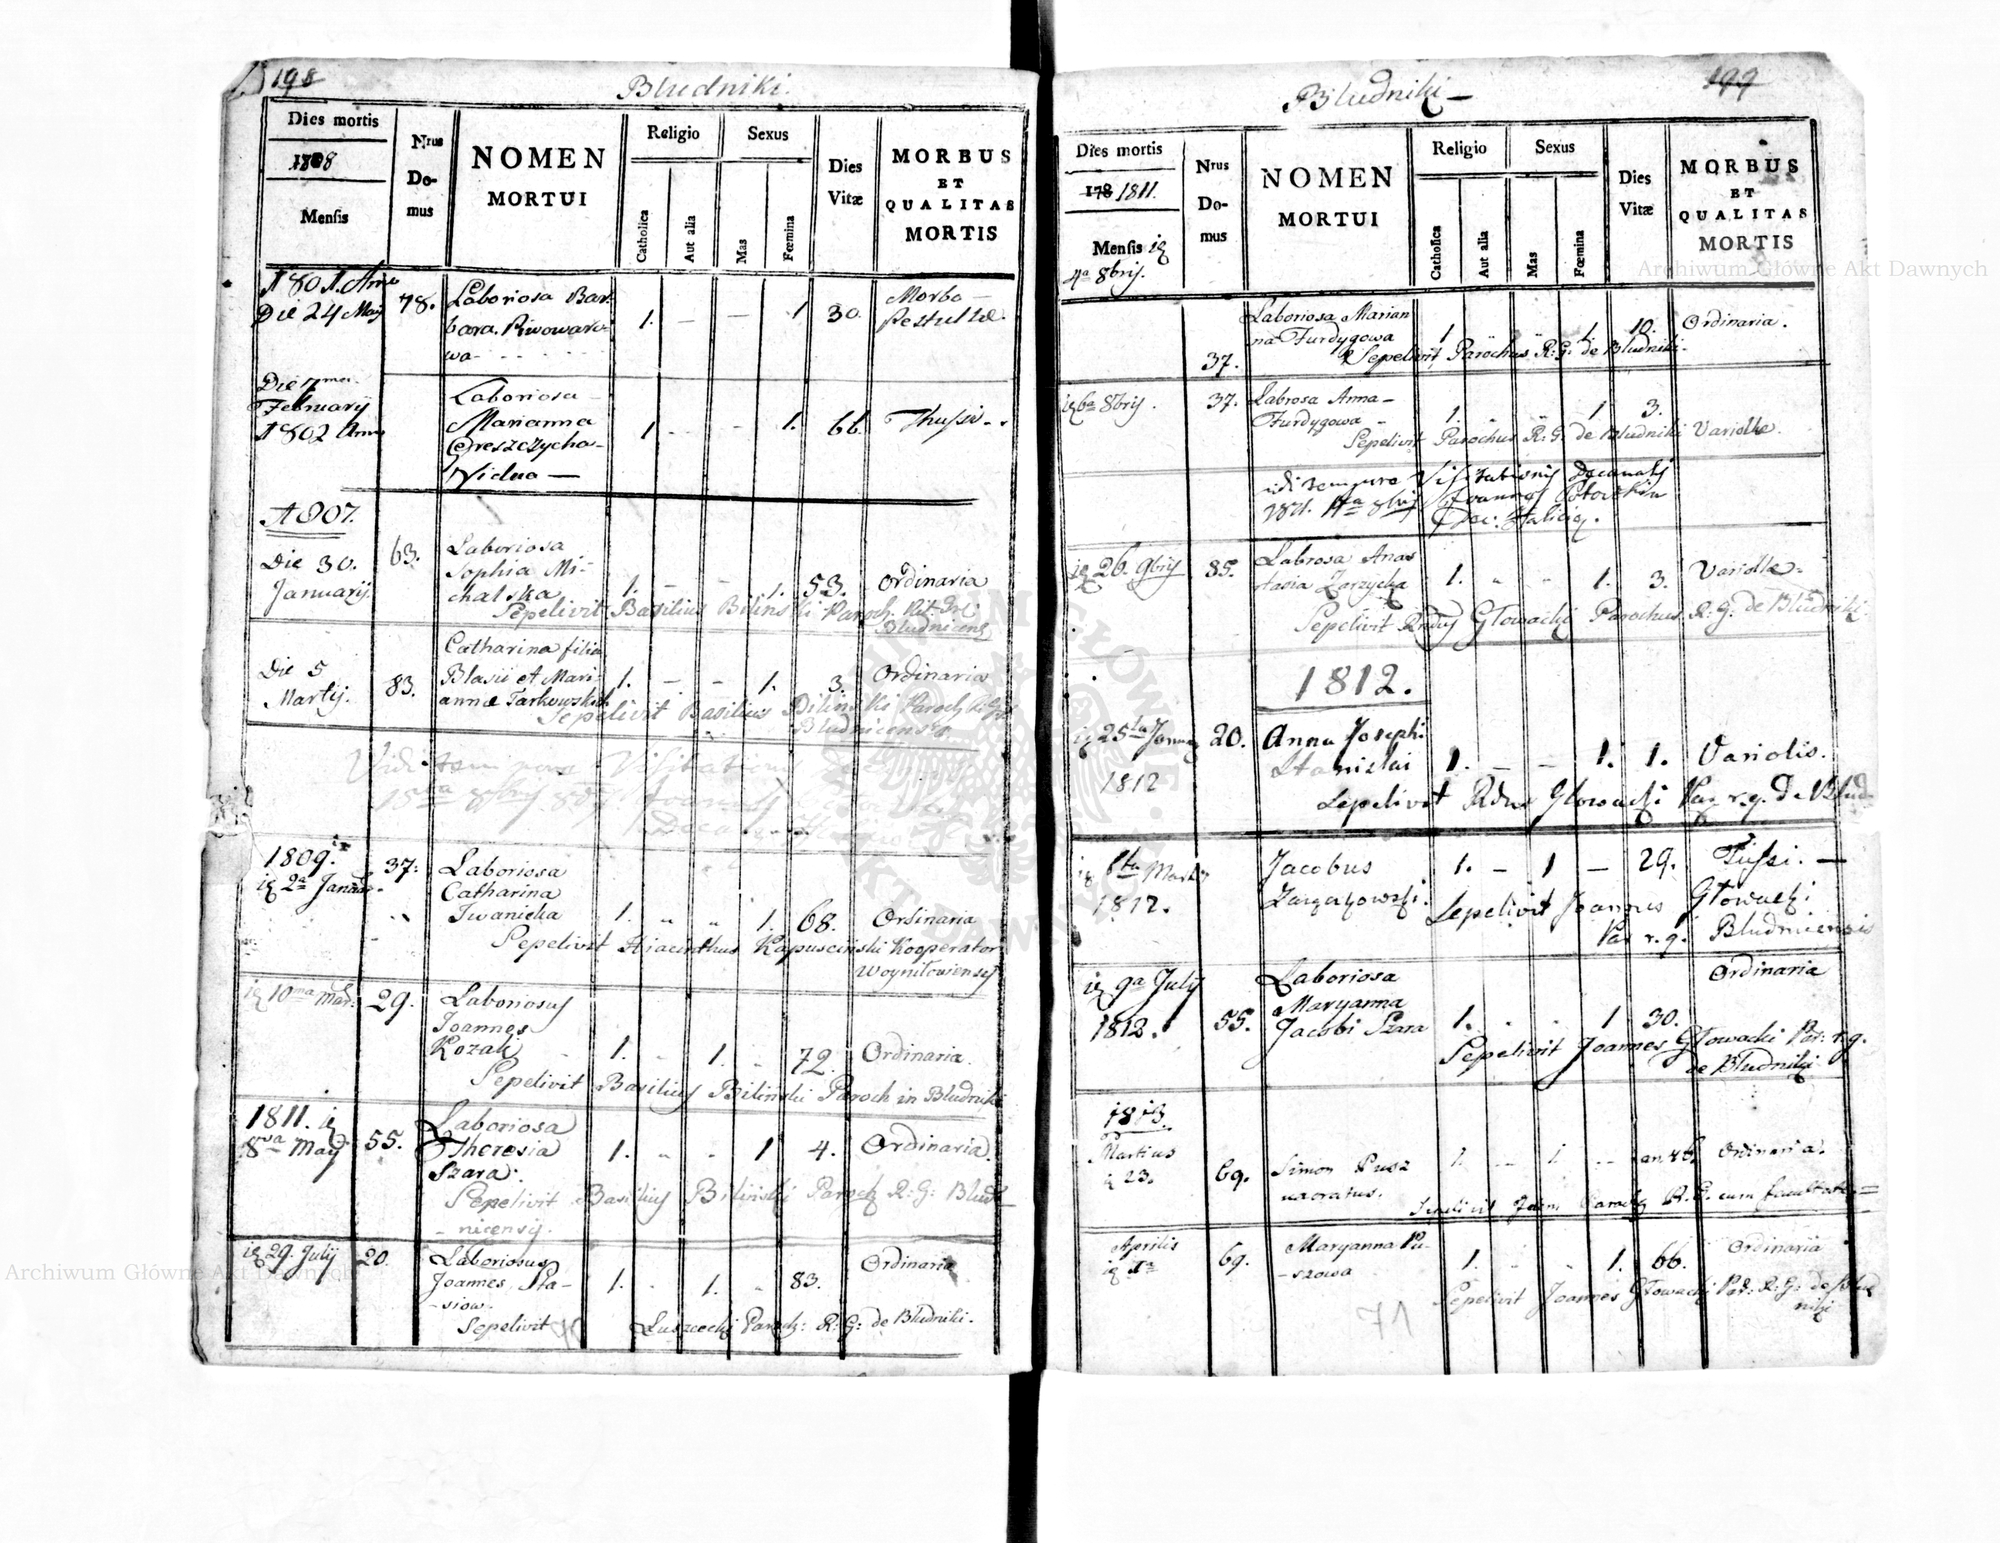 198
Bludniki.
Dies mortis
Nrus Domus
NOMEN MORTUI
Religio
Sexus
Dies Vitæ
MORBUS ET QUALITAS MORTIS
Mensis
Catholica
Aut alia
Mas
Fœmina
1801. Anno
Die 24 May
78.
Laboriosa Bar
bara Piwowaro-
wa
1. — — 1 30.
Morbo
Die 7ma
February
1802 Anno
Laboriosa
Marianna
Greszczycha
Vidua —
1 - - - 1. 66.
Thussi
1807.
Die 30.
Januarij.
63.
Laboriosa
Sophia Mi-
chalska
1. — — 1. 53.
Ordinaria
Sepelivit Basilius Bilinski Paroch. Rit. Gr.
Bludnicens
Die 5
Martij.
83.
Catharina filia
Blasii et Mari-
annæ Tarkowskich
1. — — 1. 3.
Ordinaria
Sepelivit Basilius Bilinski Paroch R. G.
Bludnicensis
Vidi tempore Visitationis
15ta 8bris 807. Joannes
1809.
2a Januar.
37.
Laboriosa
Catharina
Iwanicka
1. " " 1. 68.
Ordinaria
Sepelivit Hiacinthus Kapuscinski Kooperator
Woyniłoviensis
10ma Mar.
29.
Laboriosus
Joannes
Kozak
1. " 1. " 72.
Ordinaria.
Sepelivit Basilius Bilinski Paroch in Bludniki
1811.
8va May
55.
Laboriosa
Theresia
Szara.
1. " " 1 4.
Ordinaria.
Sepelivit Basilius Bilinski Paroch R: G: Blud-
-nicensis.
29. Julij
20.
Laboriosus
Joannes Sta-
-siow.
1. " 1. " 83.
Ordinaria
Sepelivit Luszecki Paroch: R: G: de Bludniki.
199
Bludniki —
Dies mortis
178 1811.
Nrus Domus
NOMEN MORTUI
Religio
Sexus
Dies Vitæ
MORBUS ET QUALITAS MORTIS
Mensis
4a 8bris.
Catholica
Aut alia
Mas
Fœmina
37.
Laboriosa Marian
na Furdygowa
1 " " 1 10.
Ordinaria.
Sepelivit Parochus R: G: de Bludniki.
6ta 8bris.
37.
Labrosa Anna
Furdygowa
1. " " 1 3.
Sepelivit Parochus R: G: de Bludniki Variolle.
Vidi tempore Visitationis Decanalis
Joannes
Dec: Halicien.
26. 9bris
35.
Labrosa Anas
tasia Zarzycka
1. " " 1. 3.
Variolle
Sepelivit Rndus Głowacki Parochus R. G. de Bludniki.
1812.
25ta January
1812
20.
Anna Josephi
Stanislai
1. — — 1. 1.
Variolis.
Sepelivit Rdus Głowacki Par. r. g. de Blud.
6ta Marty
1812.
Jacobus
1. — 1 — 29.
Tussi. —
Sepelivit Joannes Głowacki
Par r. g. Bludnicensis
9a July
1812.
55.
Laboriosa
Maryanna
Jacobi Szara
1. " " 1 30.
Ordinaria
Sepelivit Joannes Głowacki Par: r. g.
de Bludniki
1813.
Martius
23.
69.
Simon Pusz
uxoratus.
1. — 1. —
Ordinaria.
Sepelivit Joan. Paroch R. G. cum facultate
Aprilis
69.
Maryanna Pu-
-szowa
1. " " 1. 66.
Ordinaria
Sepelivit Joannes Głowacki Par: R: G: de Blud
niki
71
Archiwum Główne Akt Dawnych
Archiwum Główne Akt Dawnych
ARCHIWUM GŁÓWNE AKT DAWNYCH